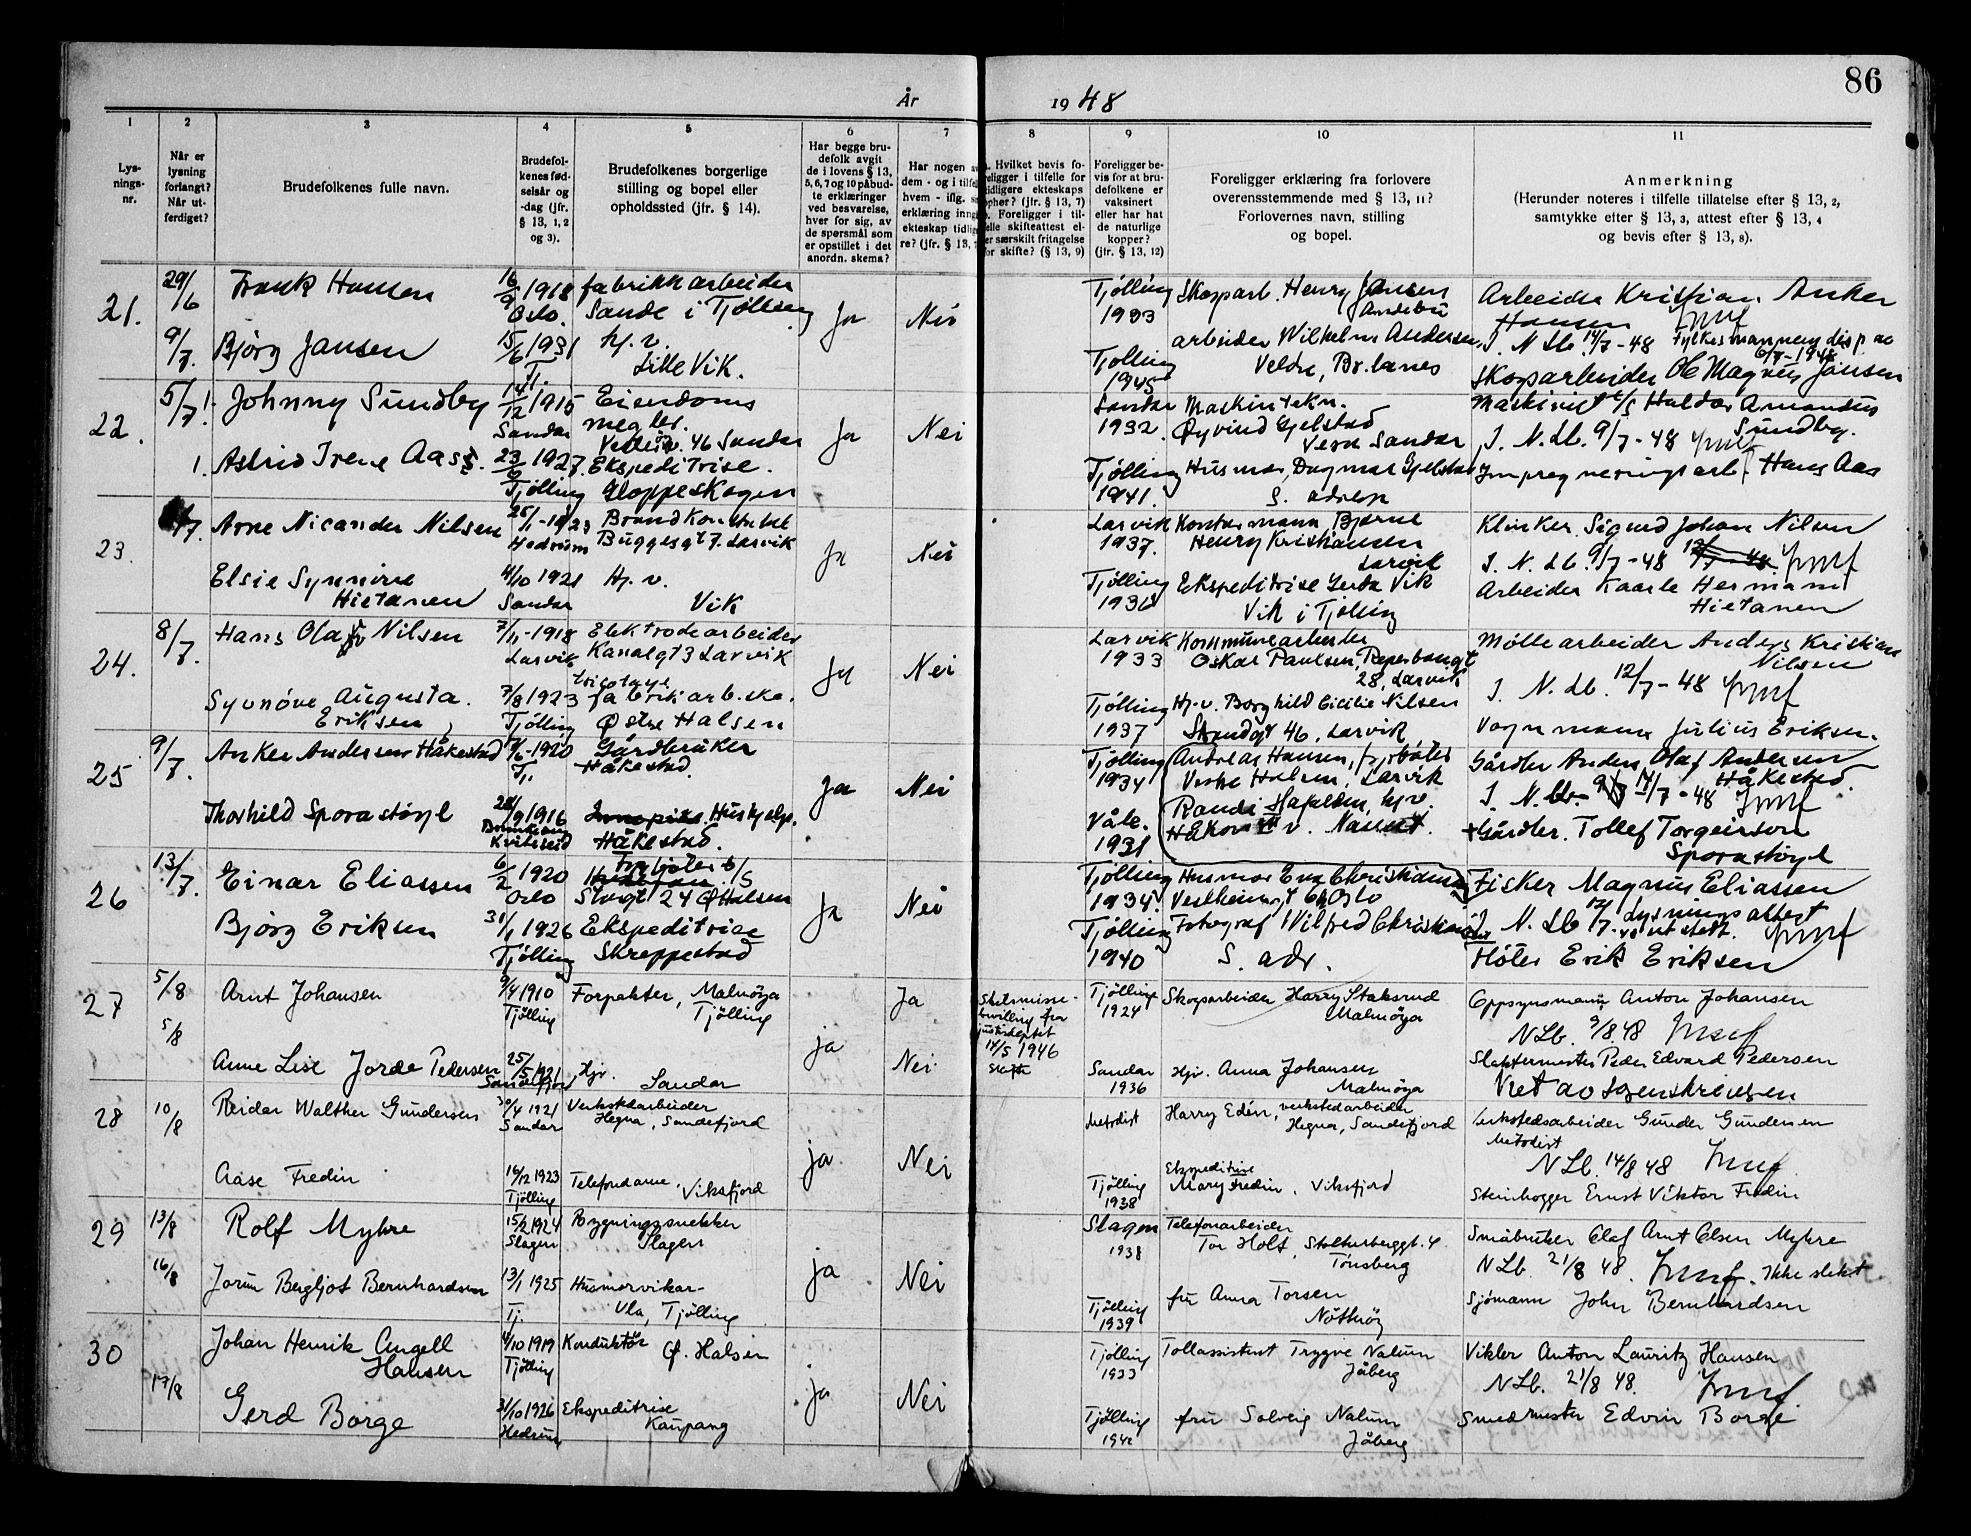 86
År 1948
1 2 3 4 5 6 7 8 9 10 11
Lys-
nings-
nr.
Når er
lysning
forlangt?
Når ut-
ferdiget?
Brudefolkenes fulle navn.
Brudefol-
kenes fød-
selsår og
-dag (jfr.
§ 13, 1, 2
og 3).
Brudefolkenes borgerlige
stilling og bopel eller
opholdssted (jfr. § 14).
Har begge bru-
defolk avgit
de i lovens § 13,
5, 6, 7 og 10 påbud-
te erklæringer
ved besvarelse,
hver for sig, av
de spørsmål som
er opstillet i det
anordn. skema?
Har nogen
dem - og i
hvem - iflg.
erklæring
ekteskap
re? (jfr. § 13,
Hvilket bevis fo-
religger i tilfelle for
tidligere ekteskaps
ophør? (jfr. § 13, 7)
Foreligger i til-
skifteattest el-
særskilt fritagelse
for skifte? (§ 13, 9)
Foreligger be-
vis for at bru-
defolkene er
vaksinert
eller har hat
de naturlige
kopper?
(jfr. § 13, 12)
Foreligger erklæring fra forlovere
overensstemmende med § 13, 11?
Forlovernes navn, stilling
og bopel.
Anmerkning
(Herunder noteres i tilfelle tillatelse efter § 13, 2,
samtykke efter § 13, 3, attest efter § 13, 4
og bevis efter § 13, 8).
21. 29/6 Frank Hansen 16/9 1918 fabrikkarbeider
Oslo. Sande i Tjølling
Ja Nei
Tjølling
1933
Skogsarb. Henry Jansen
Andebu
Arbeider Kristian Anker
Hansen
9/7. Bjørg Jansen 15/6 1931 hj.v.
Tj. Lille Vik.
Tjølling
1945
arbeider Wilhelm Andersen,
Veldre, Br.lanes
I. N Lb. 14/7-48 Fylkesmannens disp av
6/7-1948
Skogsarbeider Ole Magnus Jansen
22. 5/7 Johnny Sundby 14/12 1915 Eiendoms
megler.
Sandar 46 Sandar
Ja Nei
Sandar
1932
Maskintekn.
Øyvind Gjelstad
Sandar
Maskinist Haldor Amandus
Sundby.
I. N. Lb. 9/7-48
Astrid Irene Aas. 23/6 1927. Ekspeditrise.
Tjølling Gloppeskogen
Tjølling
1941.
Husmor, Dagmar Gjelstad
S. adresse
Impregneringsarb. Hans Aas
23. Arne Nicander Nilsen 25/1-1923 Brandkonstabel
Hedrum Buggesgt 7. Larvik
Ja Nei
Larvik
1937.
Kontormann Bjarne
Henry Kristiansen
Larvik
Klinker Sigurd Johan Nilsen
I. N. Lb. 9/7-48
Elsie Synnøve
Hietanen
4/10 1921 Hj. v.
Sandar Vik
Tjølling
1936
Ekspeditrise Gerda Vik
Vik i Tjølling
Arbeider Kaarle Hermann
Hietanen
24. 8/7. Hans Olav Nilsen 7/11-1918 Elektrodearbeider
Larvik Kanalgt 3 Larvik
Ja Nei
Larvik
1933
Kommunearbeider
Oskar Paulsen, Reperbangt
28, Larvik
Møllearbeider Anders Kristian
Nilsen
I. N. Lb. 12/7-48
Synnøve Augusta
Eriksen
7/8 1923 tricotage
fabrikarb.ske.
Tjølling Østre Halsen
Tjølling
1937
Hj.v. Borghild Cicilie Nilsen
Strandgt 46, Larvik
Vognmann Julius Eriksen.
25 9/7. Anker Andersen Håkestad 1920 Gårdbruker
Tj. Håkestad.
Ja Nei
Tjølling
1934
Andreas Hansen,
Vestre Halsen, Larvik
Gårdbr Anders Olaf Andersen
Håkestad
I. N. Lb. 14/7-48
Thorhild Sporastøyl 28/9 1916 Huskjelp.
Kviteseid Håkestad.
Våle.
1931
Randi Hafelden, hj.v.
Håkon v. Nanset.
Gårdbr. Tollef Torgeirson
Sporastøyl
26 13/7. Einar Eliassen 6/2 1920
Oslo Fyrbøter
Storgt 24 Ø Halsen
Ja Nei
Tjølling
1934.
Husmor Eva Christiansen
Oslo
Fisker Magnus Eliassen
N. Lb Lysningsattest
utstedt.
Bjørg Eriksen 31/1 1926 Ekspeditrise
Tjølling Skreppestad
Tjølling
1940
Fotograf Wilfred Christiansen
S. adr.
Fløter Erik Eriksen
27 5/8 Arnt Johansen 9/4 1910 Forpakter, Malmøya
Tjølling Tjølling
ja Ja
Skilsmisse-
bevilling fra
justisdeptet
14/5 1946
Tjølling
1924
Skogsarbeider Harry Staksrud
Malmøya
Oppsynsmann Anton Johansen
N Lb. 9/8.48
5/8 Anne Lise Jorde Pedersen 25/5 1921 Hjv.
Sandefjord Sandar
Nei
Sandar
1936
Hjv. Anna Johansen
Malmøya
Slaktermester Peder Edvard Pedersen
Viet av sorenskriveren
28 10/8 Reidar Walther Gundersen 30/4 1921 Verkstedarbeider
Sandar Hegna, Sandefjord
ja Nei
Metodist
Harry Edén, verkstedarbeider
Hegna, Sandefjord
Verkstedsarbeider Gunder Gundersen
Metodist
N Lb. 14/8 48
Aase Fredin 16/12 1923 Telefondame,
Tjølling Viksfjord
Tjølling
1938
Ekspeditrise
Mary Fredin, Viksfjord
Steinhogger Ernst Viktor Fredin
29 13/8 Rolf Myhre 15/2 1924 Bygningssnekker
Slagen Slagen
ja Nei
Slagen
1938
Telefonarbeider
Tor Holt, Stoltenberggt. 4
Tønsberg
Småbruker Olaf Arnt Olsen Myhre
N Lb. 21/8 48. Ikke slekt
16/8 Jorun Bergljot Bernhardsen 13/1 1925 Husmorvikar
Tj. Ula, Tjølling
Tjølling
1939
fru Anna Torsen
Nøtterøy
Sjømann John Bernhardsen
30 Johan Henrik Angell
Hansen
4/10 1919 Konduktør
Tjølling Ø. Halsen
ja Nei
Tjølling
1933
Tollassistent Trygve Nalum
Jåberg
Vikler Anton Lauritz Hansen
N Lb. 21/8 48.
17/8 Gerd Borge 31/10 1926 Ekspeditrise
Hedrum Kaupang
Tjølling
194
fru Solveig Nalum
Jåberg
Smedmester Edvin Borge